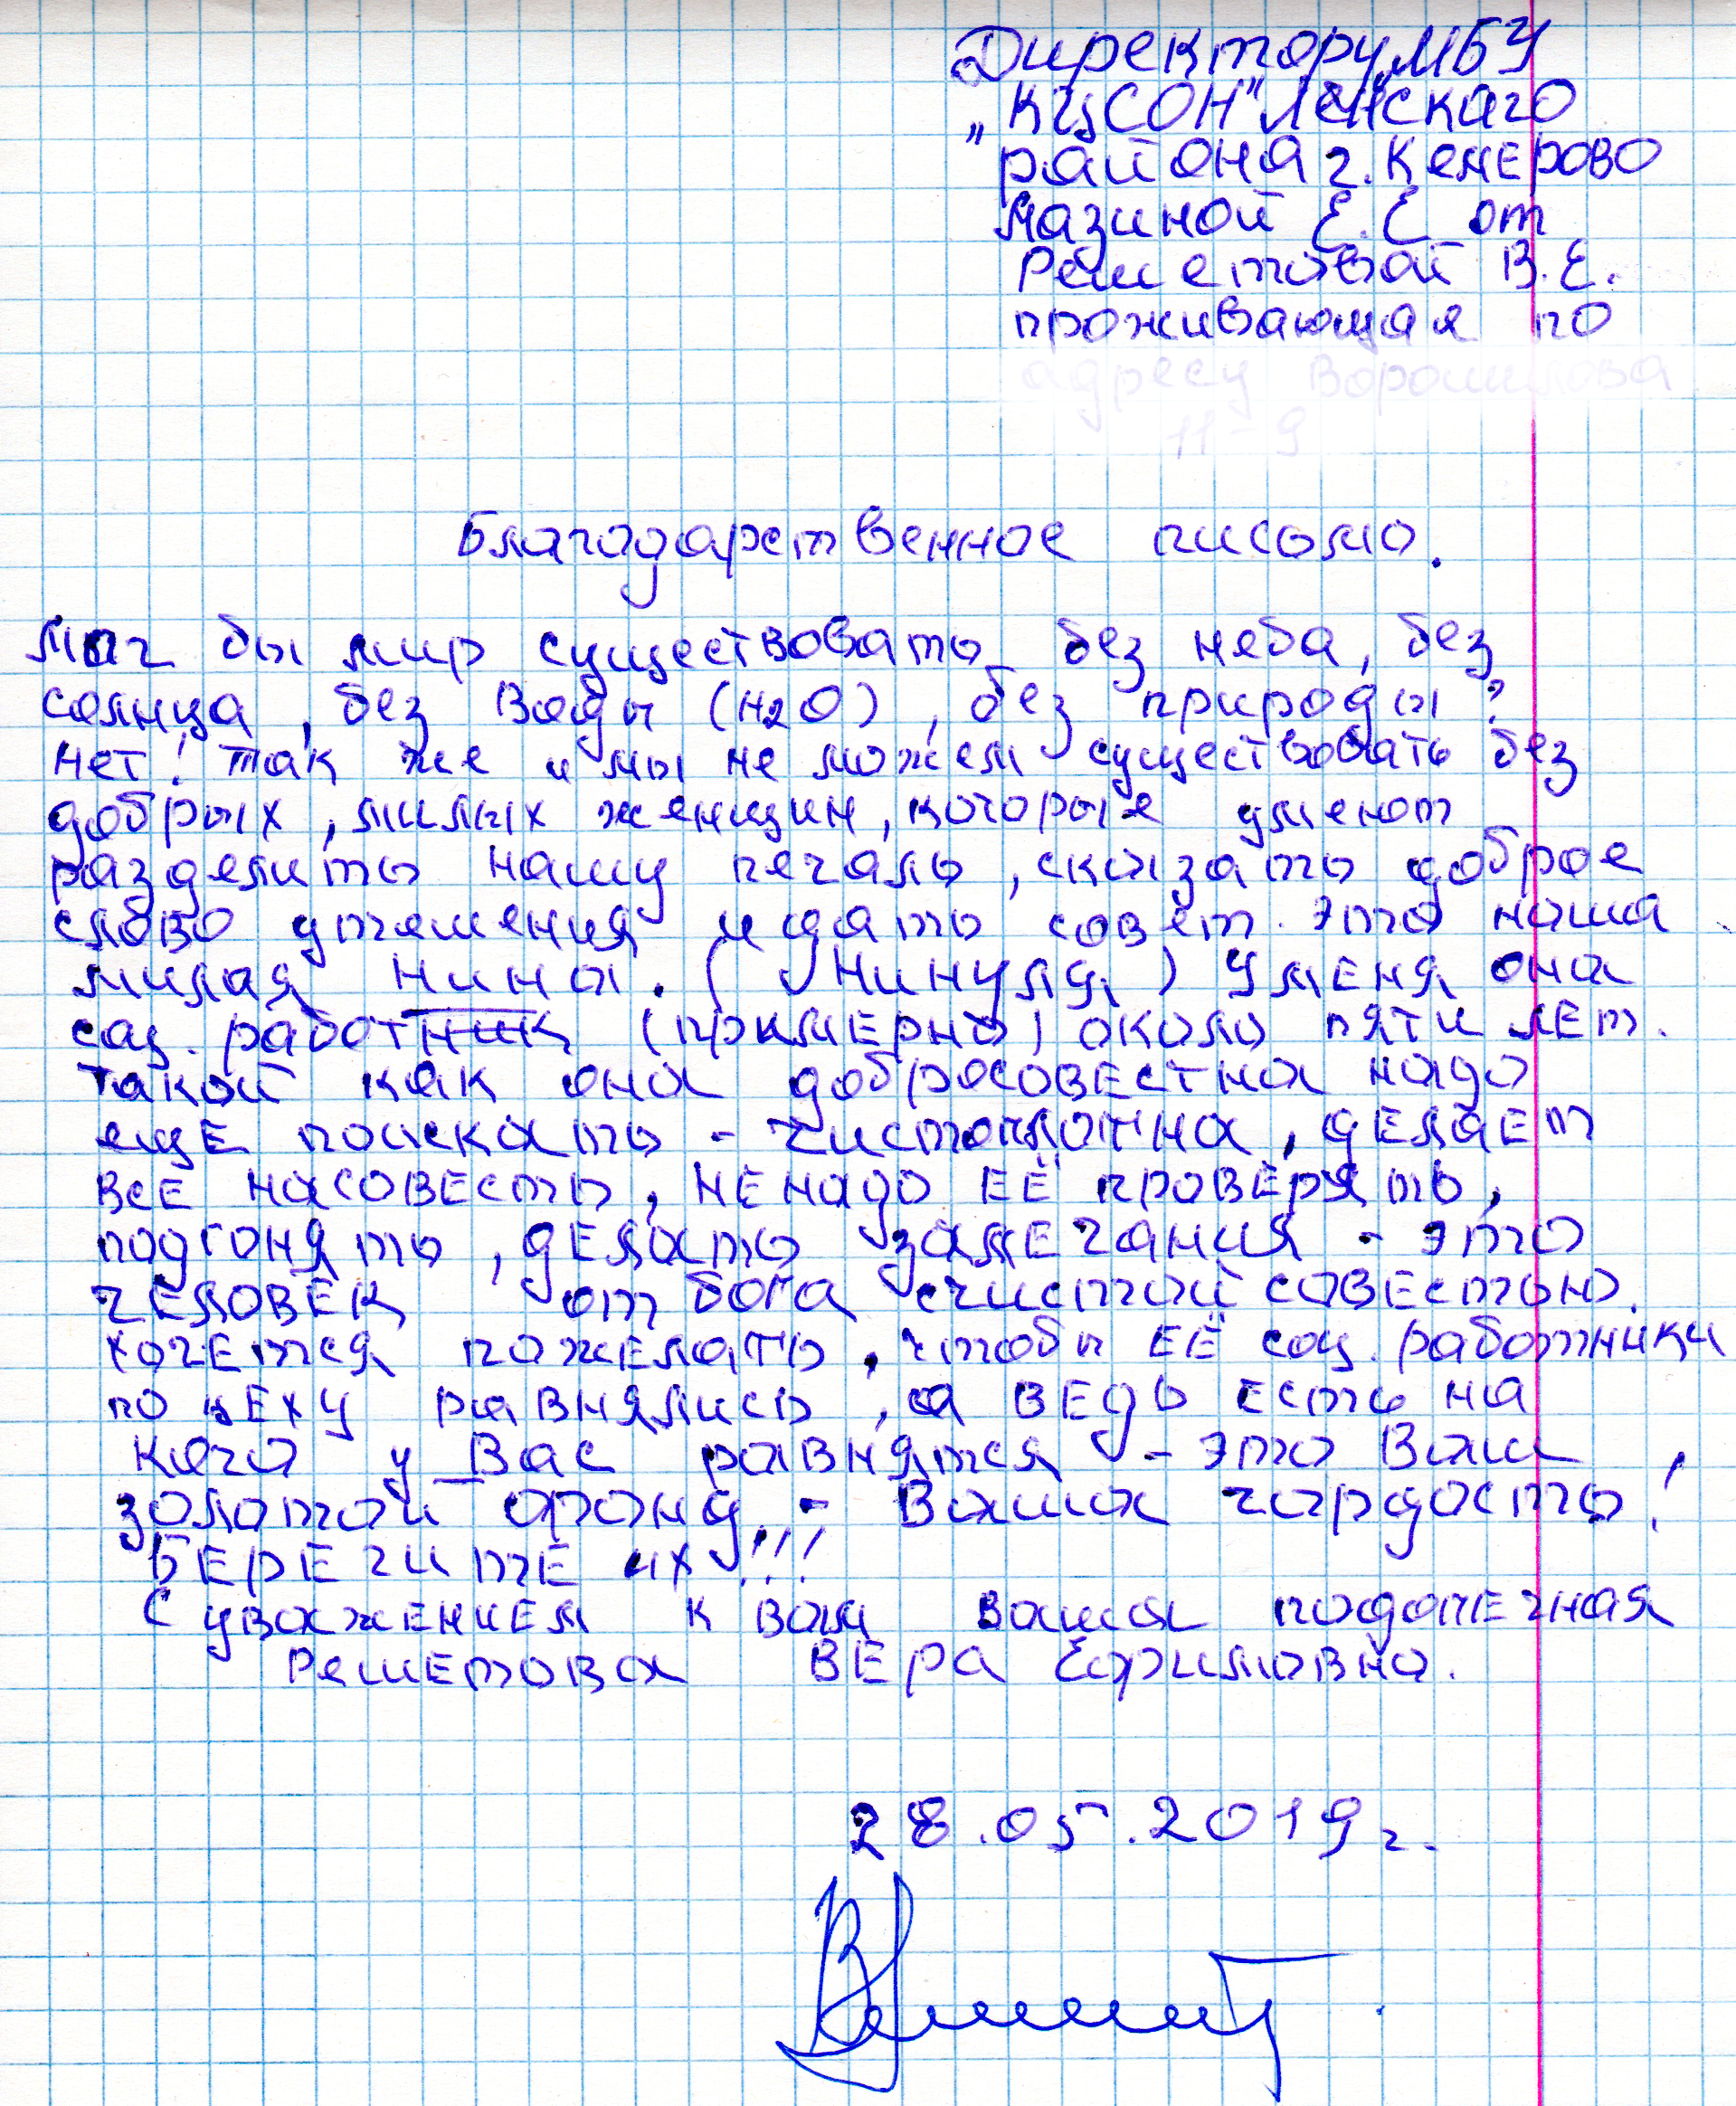 Директору МБУ
„КЦСОН" Ленскаго
района г. Кемерово
Мазиной Е.Е от
Решетовой В.Е.
проживающая по
адресу Ворошилова
11-9
Благодарственное письмо.
Мог бы мир существовать без неба, без
солнца, без воды (H2O), без природы?
Нет! Так же и мы не можем существовать без
добрых, милых женщин, которые умеют
разделить нашу печаль, сказать доброе
слово утешения и дать совет. Это наша
милая Нина. (Нинуля) У меня она
соц. работник (примерно) около пяти лет.
Такой как она добросовестна надо
еще поискать - чистоплотна, делает
все насовесть, ненадо её проверять,
подгонять, делать замечания - это
человек от бога счистой совестью.
Хочется пожелать, чтобы её соц. работники
по цеху равнялись, а ведь есть на
кого у Вас равнятся - это Ваш
золотой фонд - Ваша гордость!
Берегите их!!!
С уважением к вам ваша подопечная
Решетова Вера Ефимовна.
28.05.2019г.